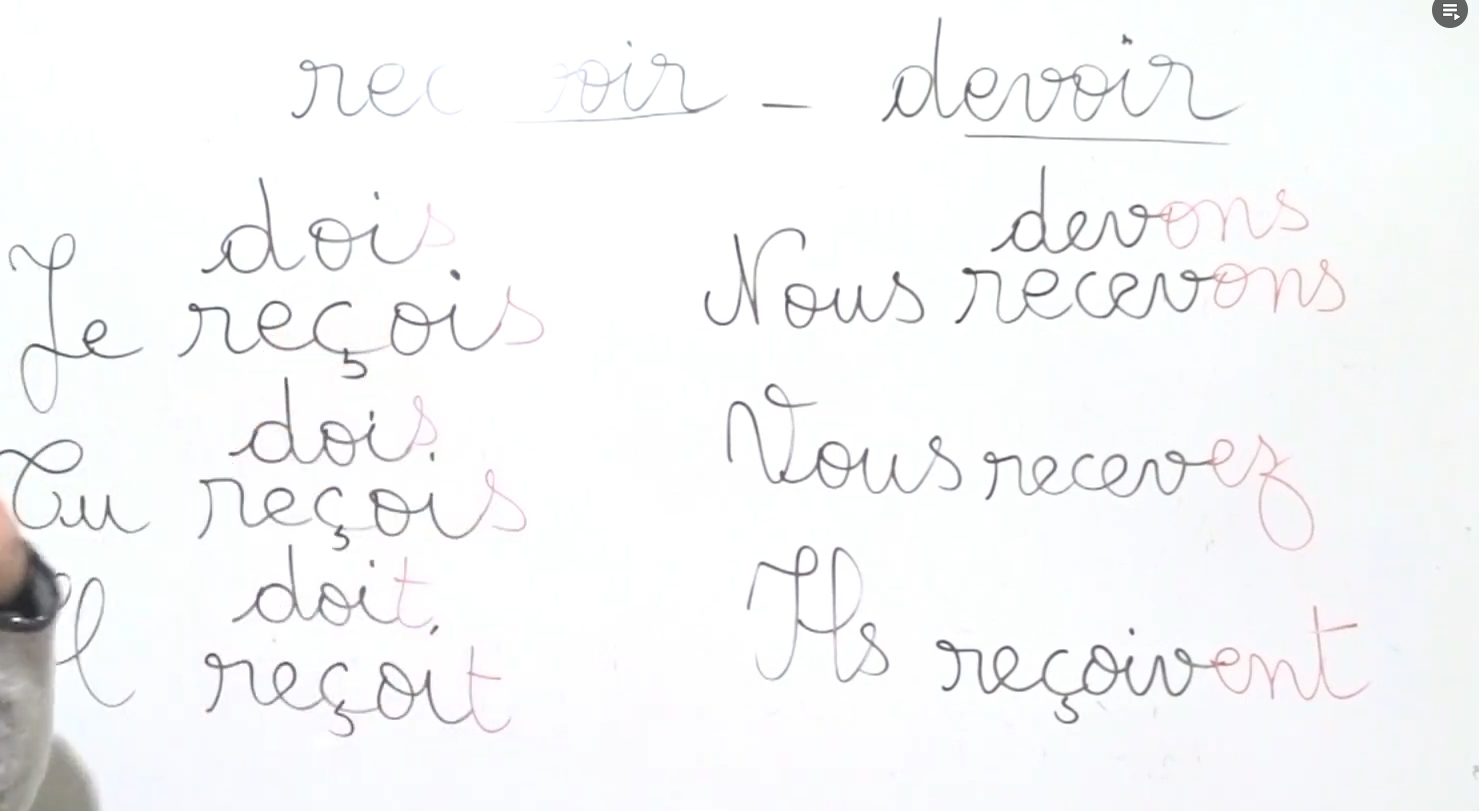 rec voir - devoir
dois
Je reçois
dois
Tu reçois
doit,
Il reçoit
devons
Nous recevons
Vous recevez
Ils reçoivent